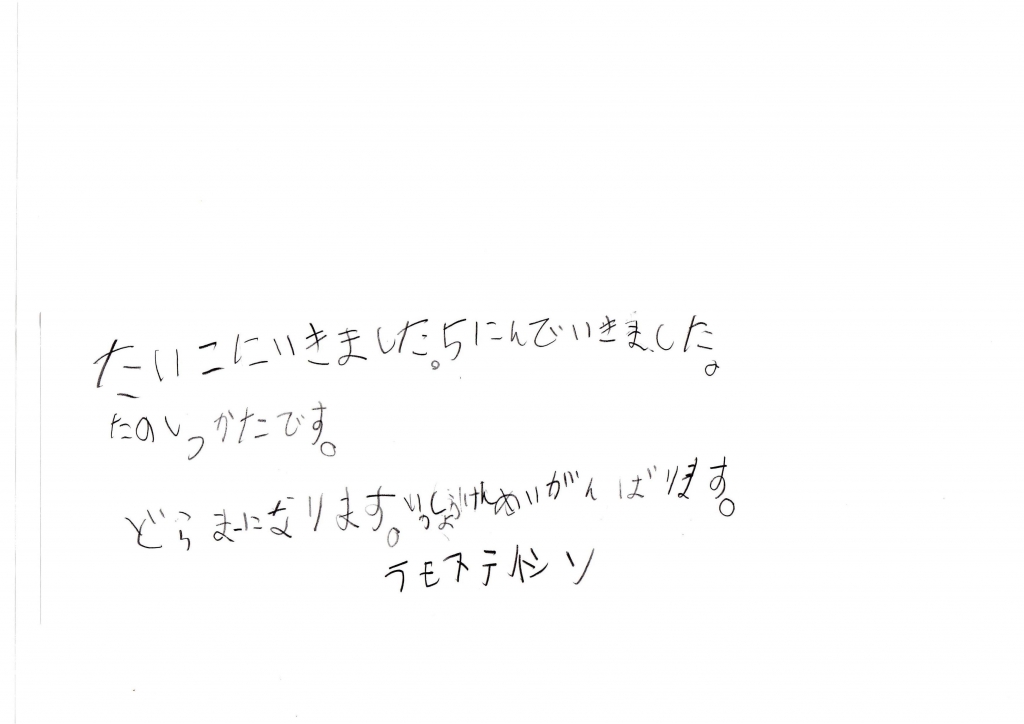 たいこにいきました。5にんでいきました。
たのしっかたです。
どらまーになります。いっしょうけんめいがんばります。
ラモステイシソ